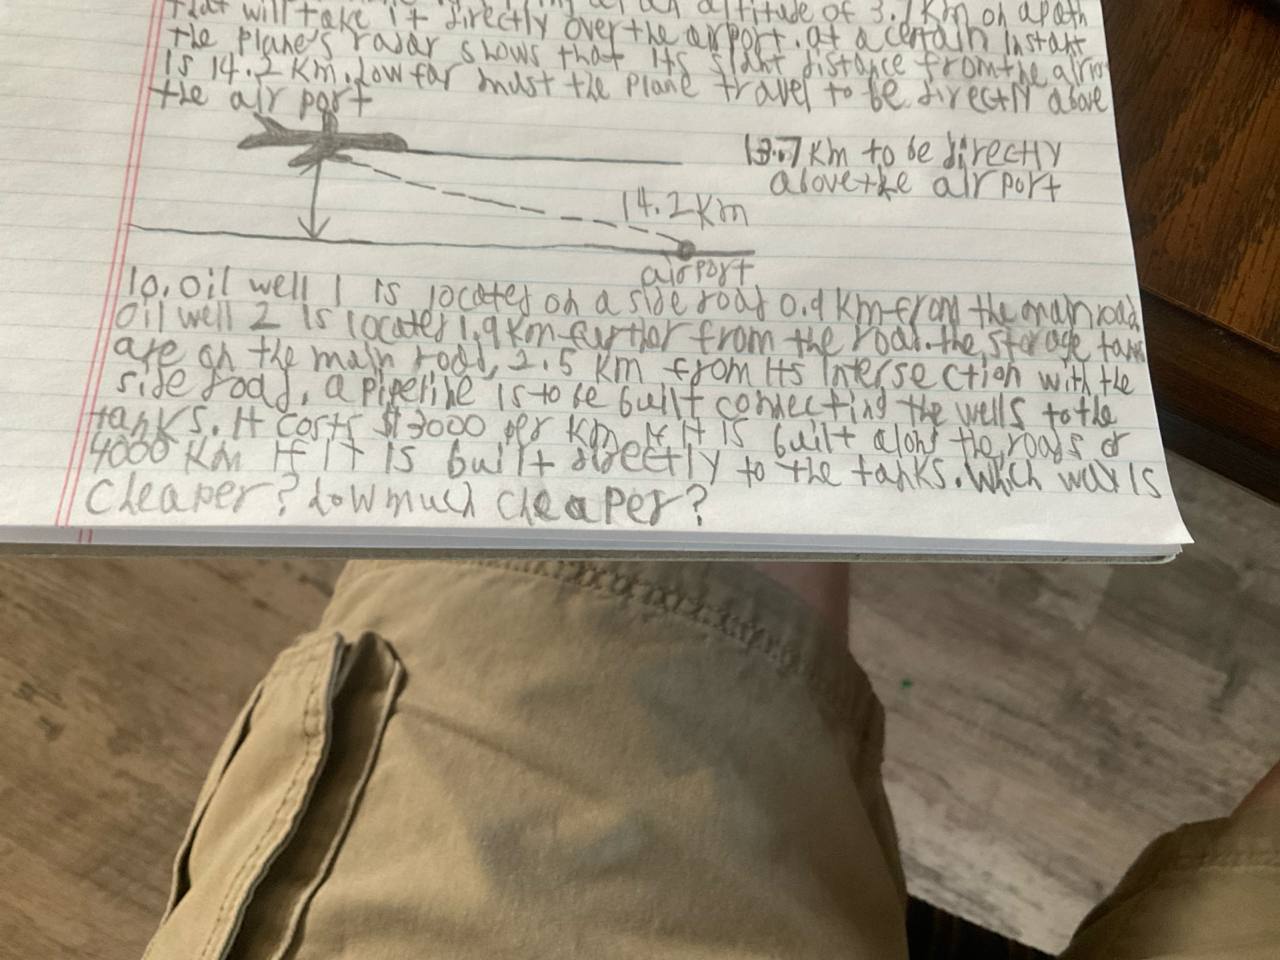 that will take it directly over the airport. at a certain instant
the plane's radar shows that its slant distance from the
is 14.2 Km. How far must the plane travel to be directly above
the air port
13.7 Km to be directly
above the air port
14.2 Km
airport
10. Oil well 1 is located on a side road 0.9 Km from the main road
Oil well 2 is located 1.9 Km farther from the road. the storage tanks
are on the main road, 2.5 Km from its intersection with the
side road. a pipeline is to be built connecting the wells to the
tanks. It costs $13000 per Km if it is built along the roads or
4000 Km if it is built directly to the tanks. Which way is
cheaper? How much cheaper?